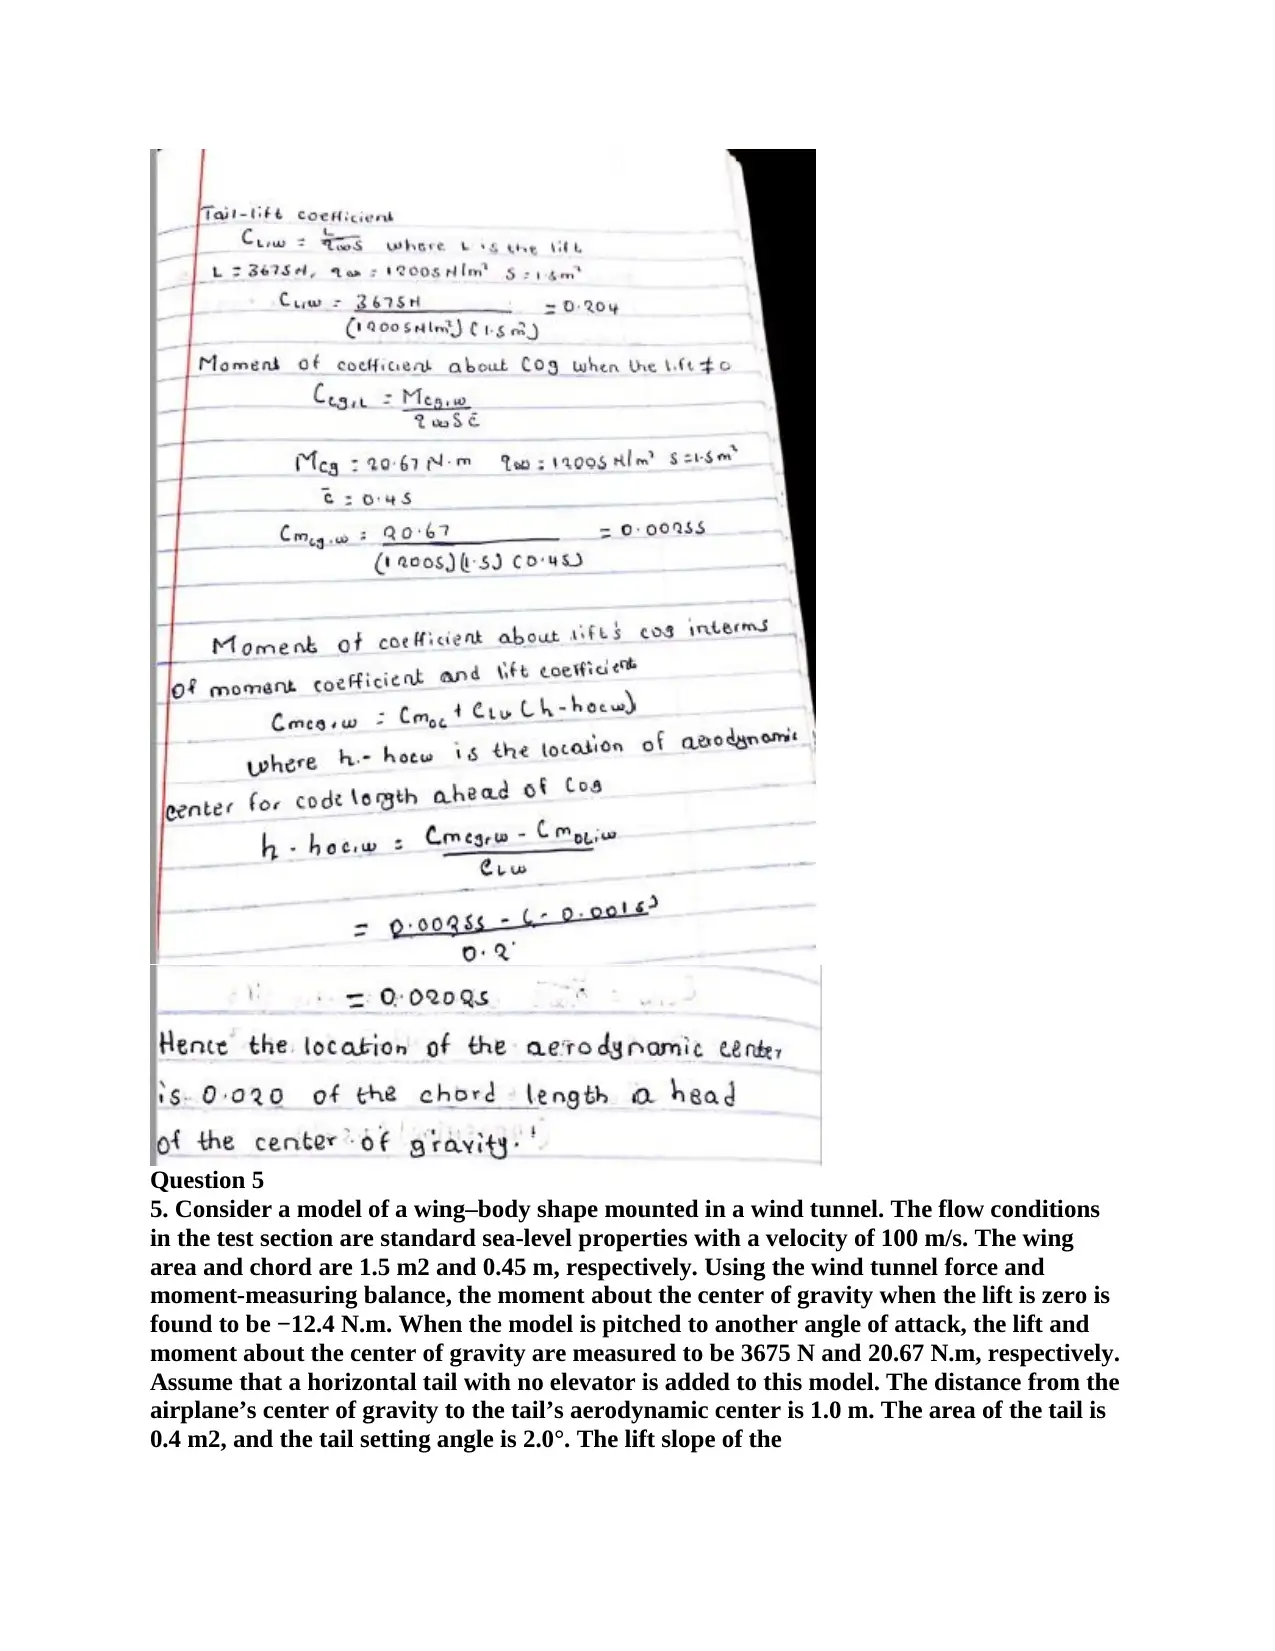 Tail-lift coefficient
CL,w = L / q∞S where L is the lift
L = 3675N, q∞ = 12005N/m² S = 1.5m²
CL,w = 3675N / (12005N/m²)(1.5m²) = 0.204
Moment of coefficient about cog when the lift ≠ 0
Ccg,L = Mcg,w / q∞Sc̄
Mcg = 20.67 N.m q∞ = 12005 N/m² S = 1.5m²
c̄ = 0.45
Cmcg,w = 20.67 / (12005)(1.5)(0.45) = 0.00255
Moment of coefficient about lift's cog interms
of moment coefficient and lift coefficient
Cmcg,w = CmoL + CLw (h-hocw)
where h.- hocw is the location of aerodynamic
center for code length ahead of Cog
h - hoc,w = Cmcg,w - CmoL,w / CLw
= 0.00255 - (-0.0015) / 0.2
= 0.02025
Hence the location of the aerodynamic center
is 0.020 of the chord length a head
of the center of gravity.
Question 5
5. Consider a model of a wing–body shape mounted in a wind tunnel. The flow conditions
in the test section are standard sea-level properties with a velocity of 100 m/s. The wing
area and chord are 1.5 m2 and 0.45 m, respectively. Using the wind tunnel force and
moment-measuring balance, the moment about the center of gravity when the lift is zero is
found to be −12.4 N.m. When the model is pitched to another angle of attack, the lift and
moment about the center of gravity are measured to be 3675 N and 20.67 N.m, respectively.
Assume that a horizontal tail with no elevator is added to this model. The distance from the
airplane’s center of gravity to the tail’s aerodynamic center is 1.0 m. The area of the tail is
0.4 m2, and the tail setting angle is 2.0°. The lift slope of the